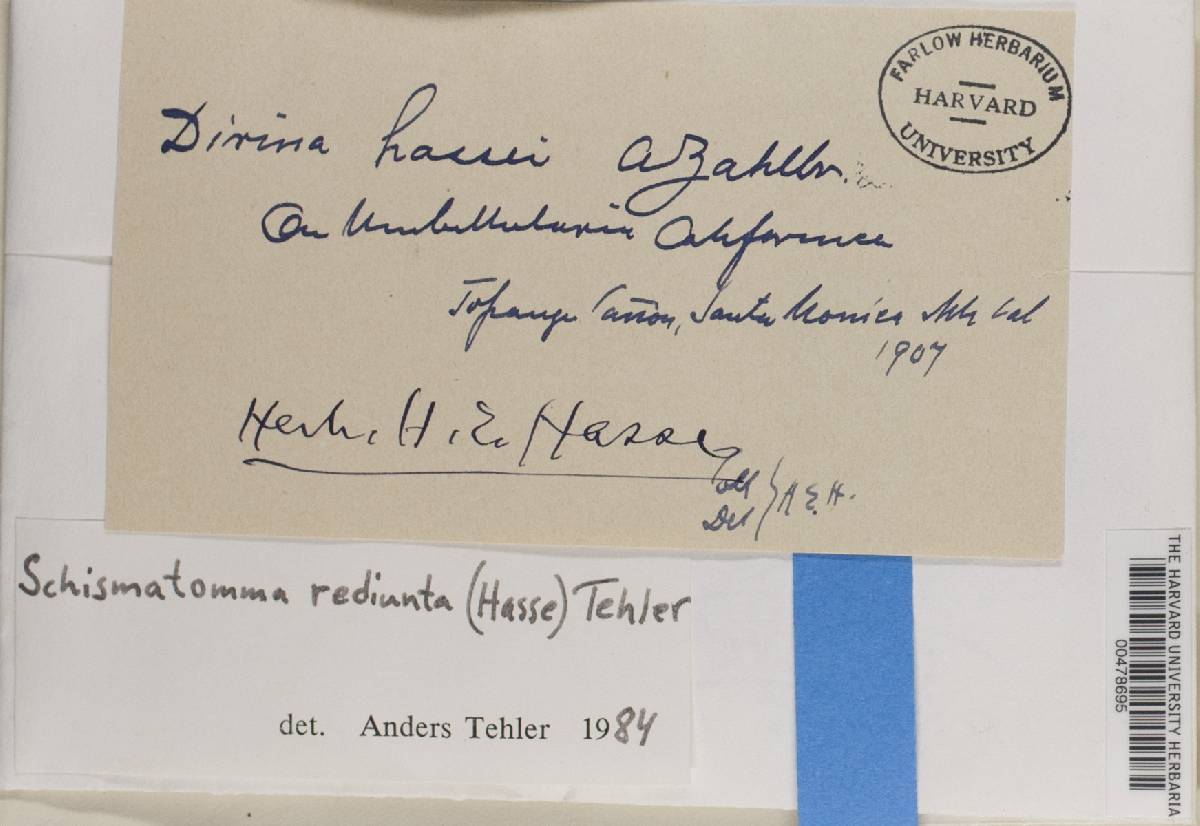 FARLOW HERBARIUM
HARVARD
UNIVERSITY
Dirina hassei AZahlbr.
On Umbellularia Californica
Topanga Cañon, Santa Monica Mts Cal
1907
Herb. H. E. Hasse
Coll
Det } H. E. H.
Schismatomma rediunta (Hasse) Tehler
det. Anders Tehler 1984
THE HARVARD UNIVERSITY HERBARIA
00478695